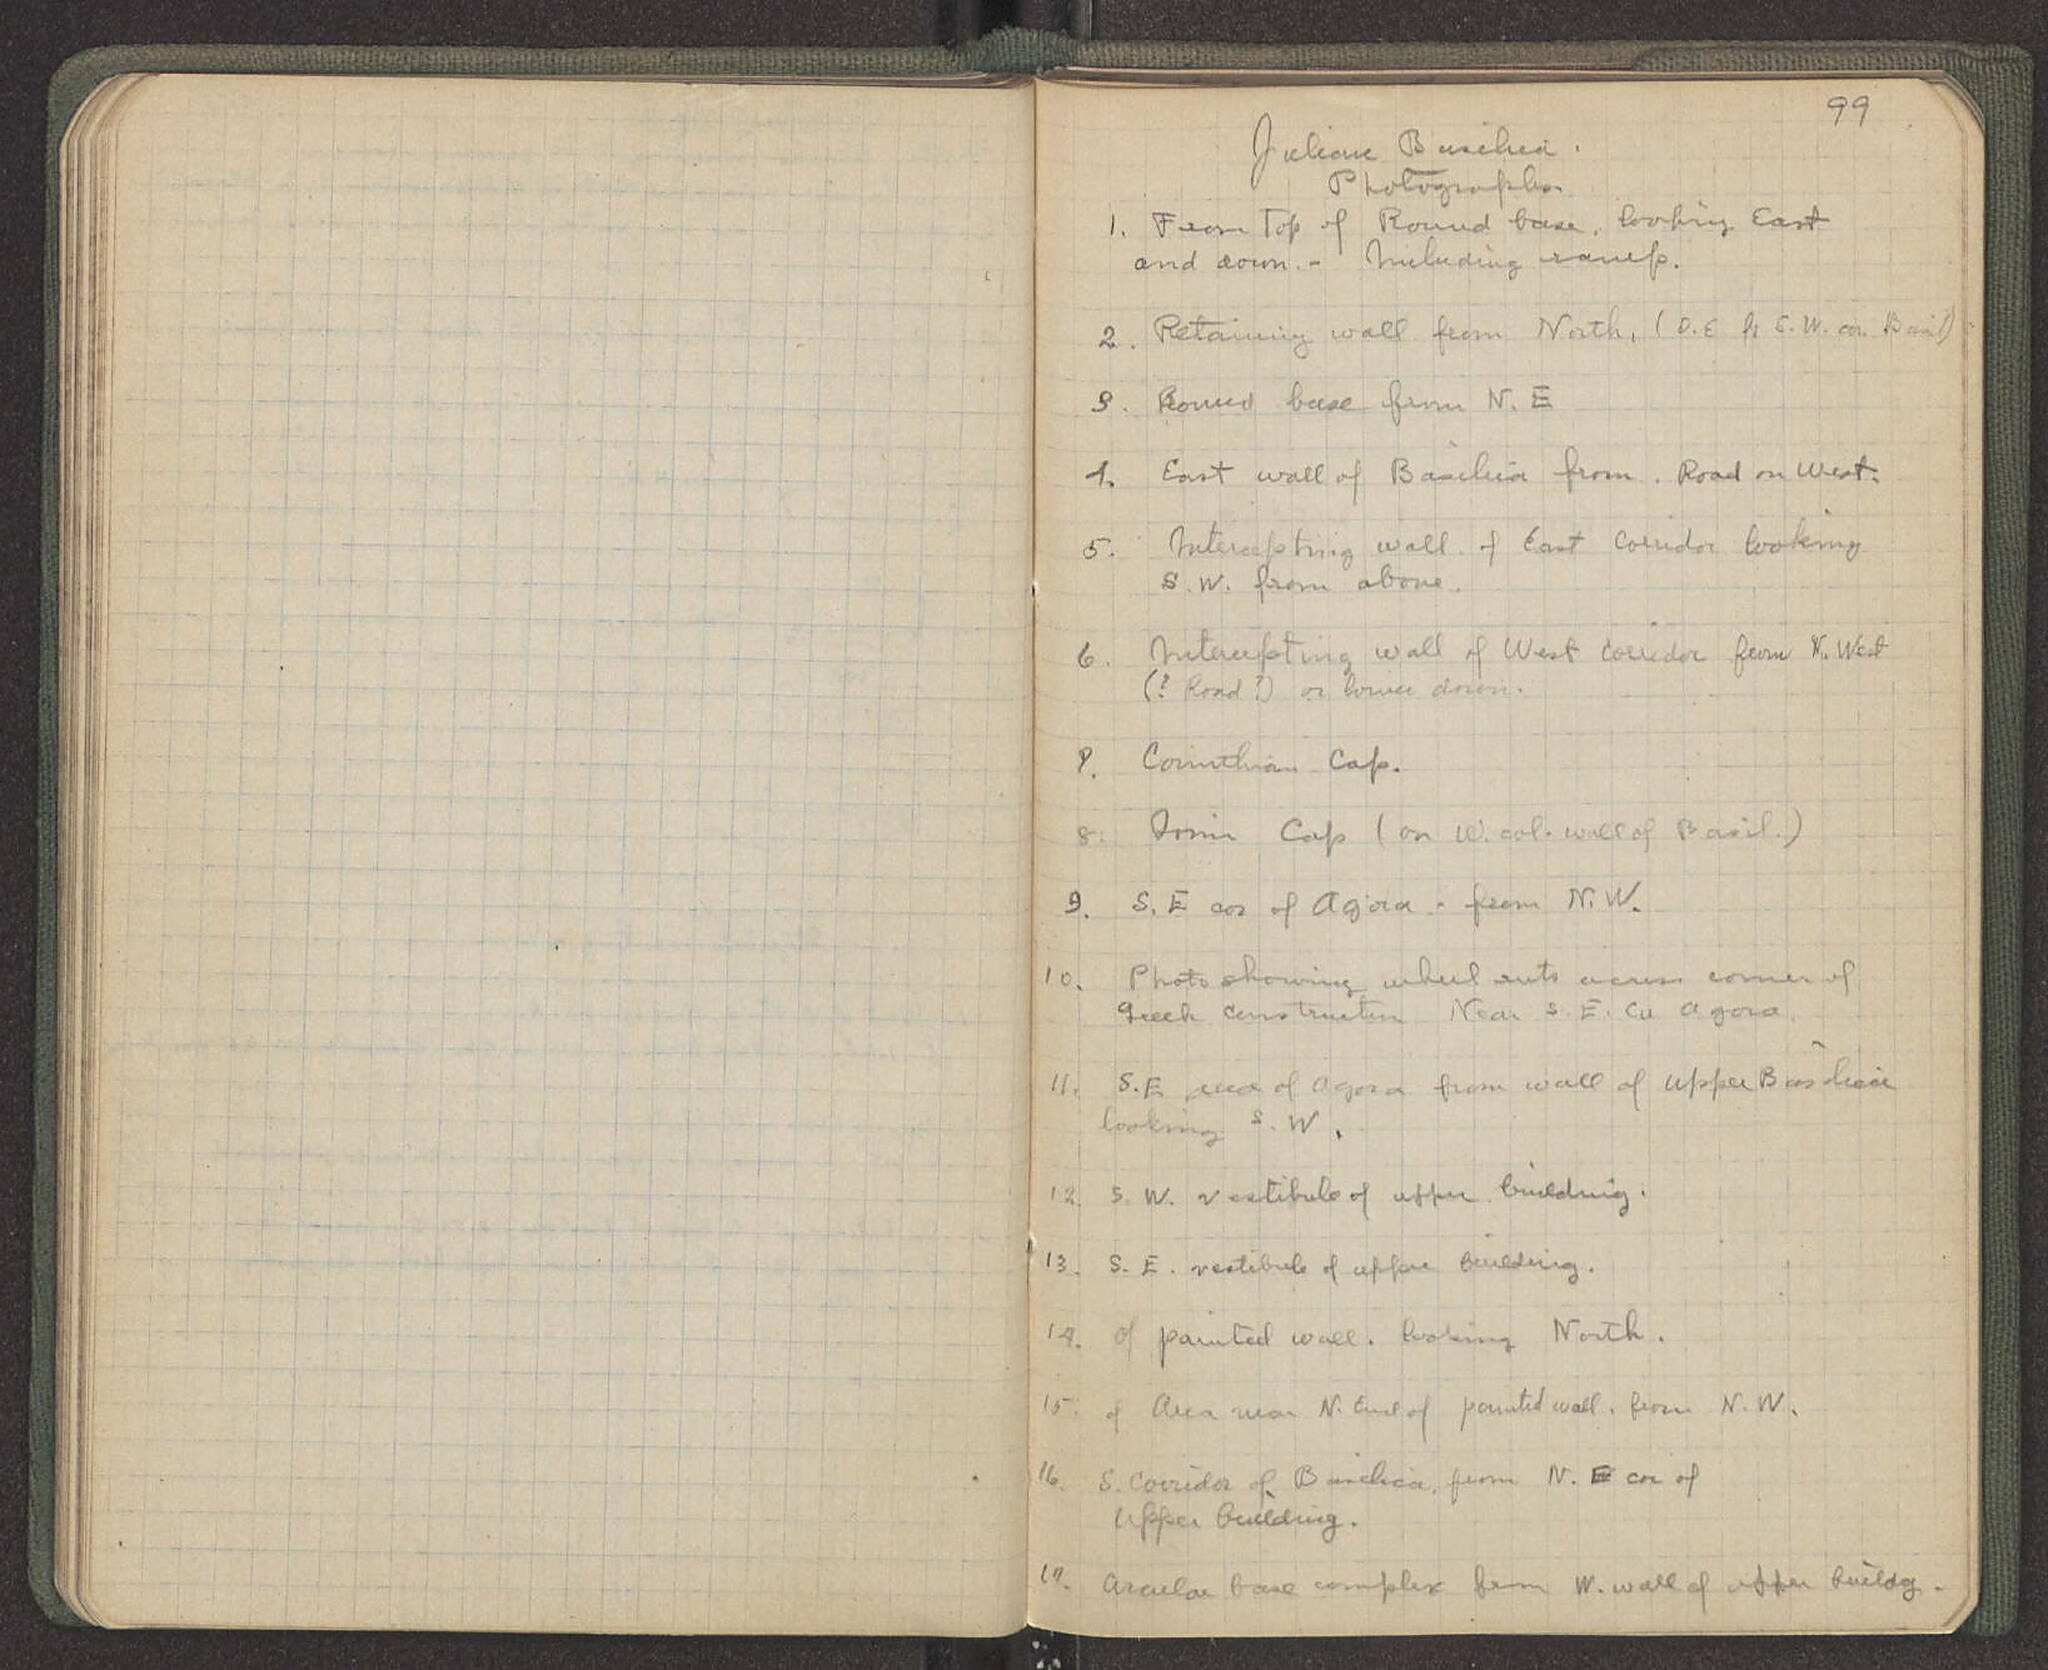 99
Julian Basilica.
Photographs
1. From top of Round base, looking East
and down. - Including ramp.
2. Retaining wall from North, (S.E. S.W. cor. Basil)
3. Round base from N. E
4. East wall of Basilica from. Road on West.
5. Intercepting wall of East corridor looking
S.W. from above.
6. Intercepting wall of West corridor from N. West
(? Road ?) or lower down.
7. Corinthian Cap.
8. Ionic Cap (on W. col. wall of Basil.)
9. S. E cor of Agora - from N.W.
10. Photo showing wheel ruts across corner of
Greek construction Near S. E. Cor Agora.
11. S.E area of Agora from wall of upper Basilica
looking S. W.
12. S. W. vestibule of upper building.
13. S. E. vestibule of upper building.
14. Of painted wall. looking North.
15. of Area near N. End of painted wall. from N. W.
16. S. Corridor of Basilica, from N. E cor of
Upper building.
17. Circular base complex from W. wall of upper buildg.